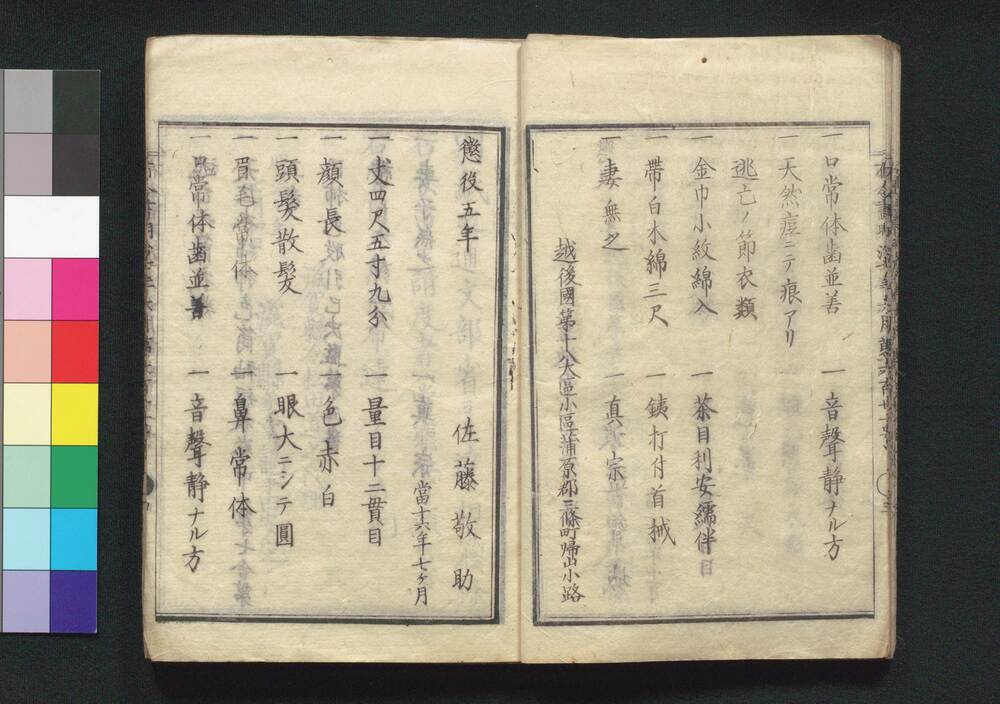 一 口常体歯並善 一 音聲静ナル方
一 天然痘ニテ痕アリ
逃亡ノ節衣類
一 金巾小紋綿入 一 茶目利安繻伴 目
一 帯白木綿三尺 一 銕打付首械
一 妻無之 一 真宗
越後國第十八大區小區蒲原郡三條町帰山小路
懲役五年 佐藤敬助
當十六年七ヶ月
一 丈四尺五寸九分 一 量目十二貫目
一 顔長 一 色赤白
一 頭髪散髪 一 眼大ニシテ圓
一 眉毛常体 一 鼻常体
一 口常体歯並善 一 音聲静ナル方